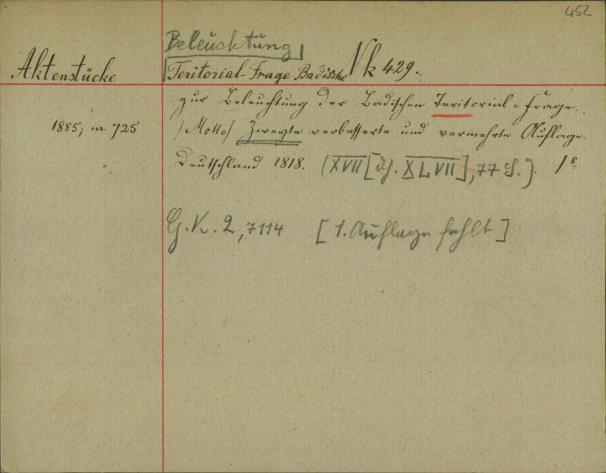 452
Beleuchtung
Aktenstücke
Teritorial-Frage Badische Nk 429.
zur Beleuchtung der Badischen Teritorial-Frage.
1885, nr. 725
/Motto/ Zweyte verbesserte und vermehrte Auflage.
Deutschland 1818. (XVII [d.h. XLVII], 77 S.). 1 8
G. K. 2, 7114 [1. Auflage fehlt]